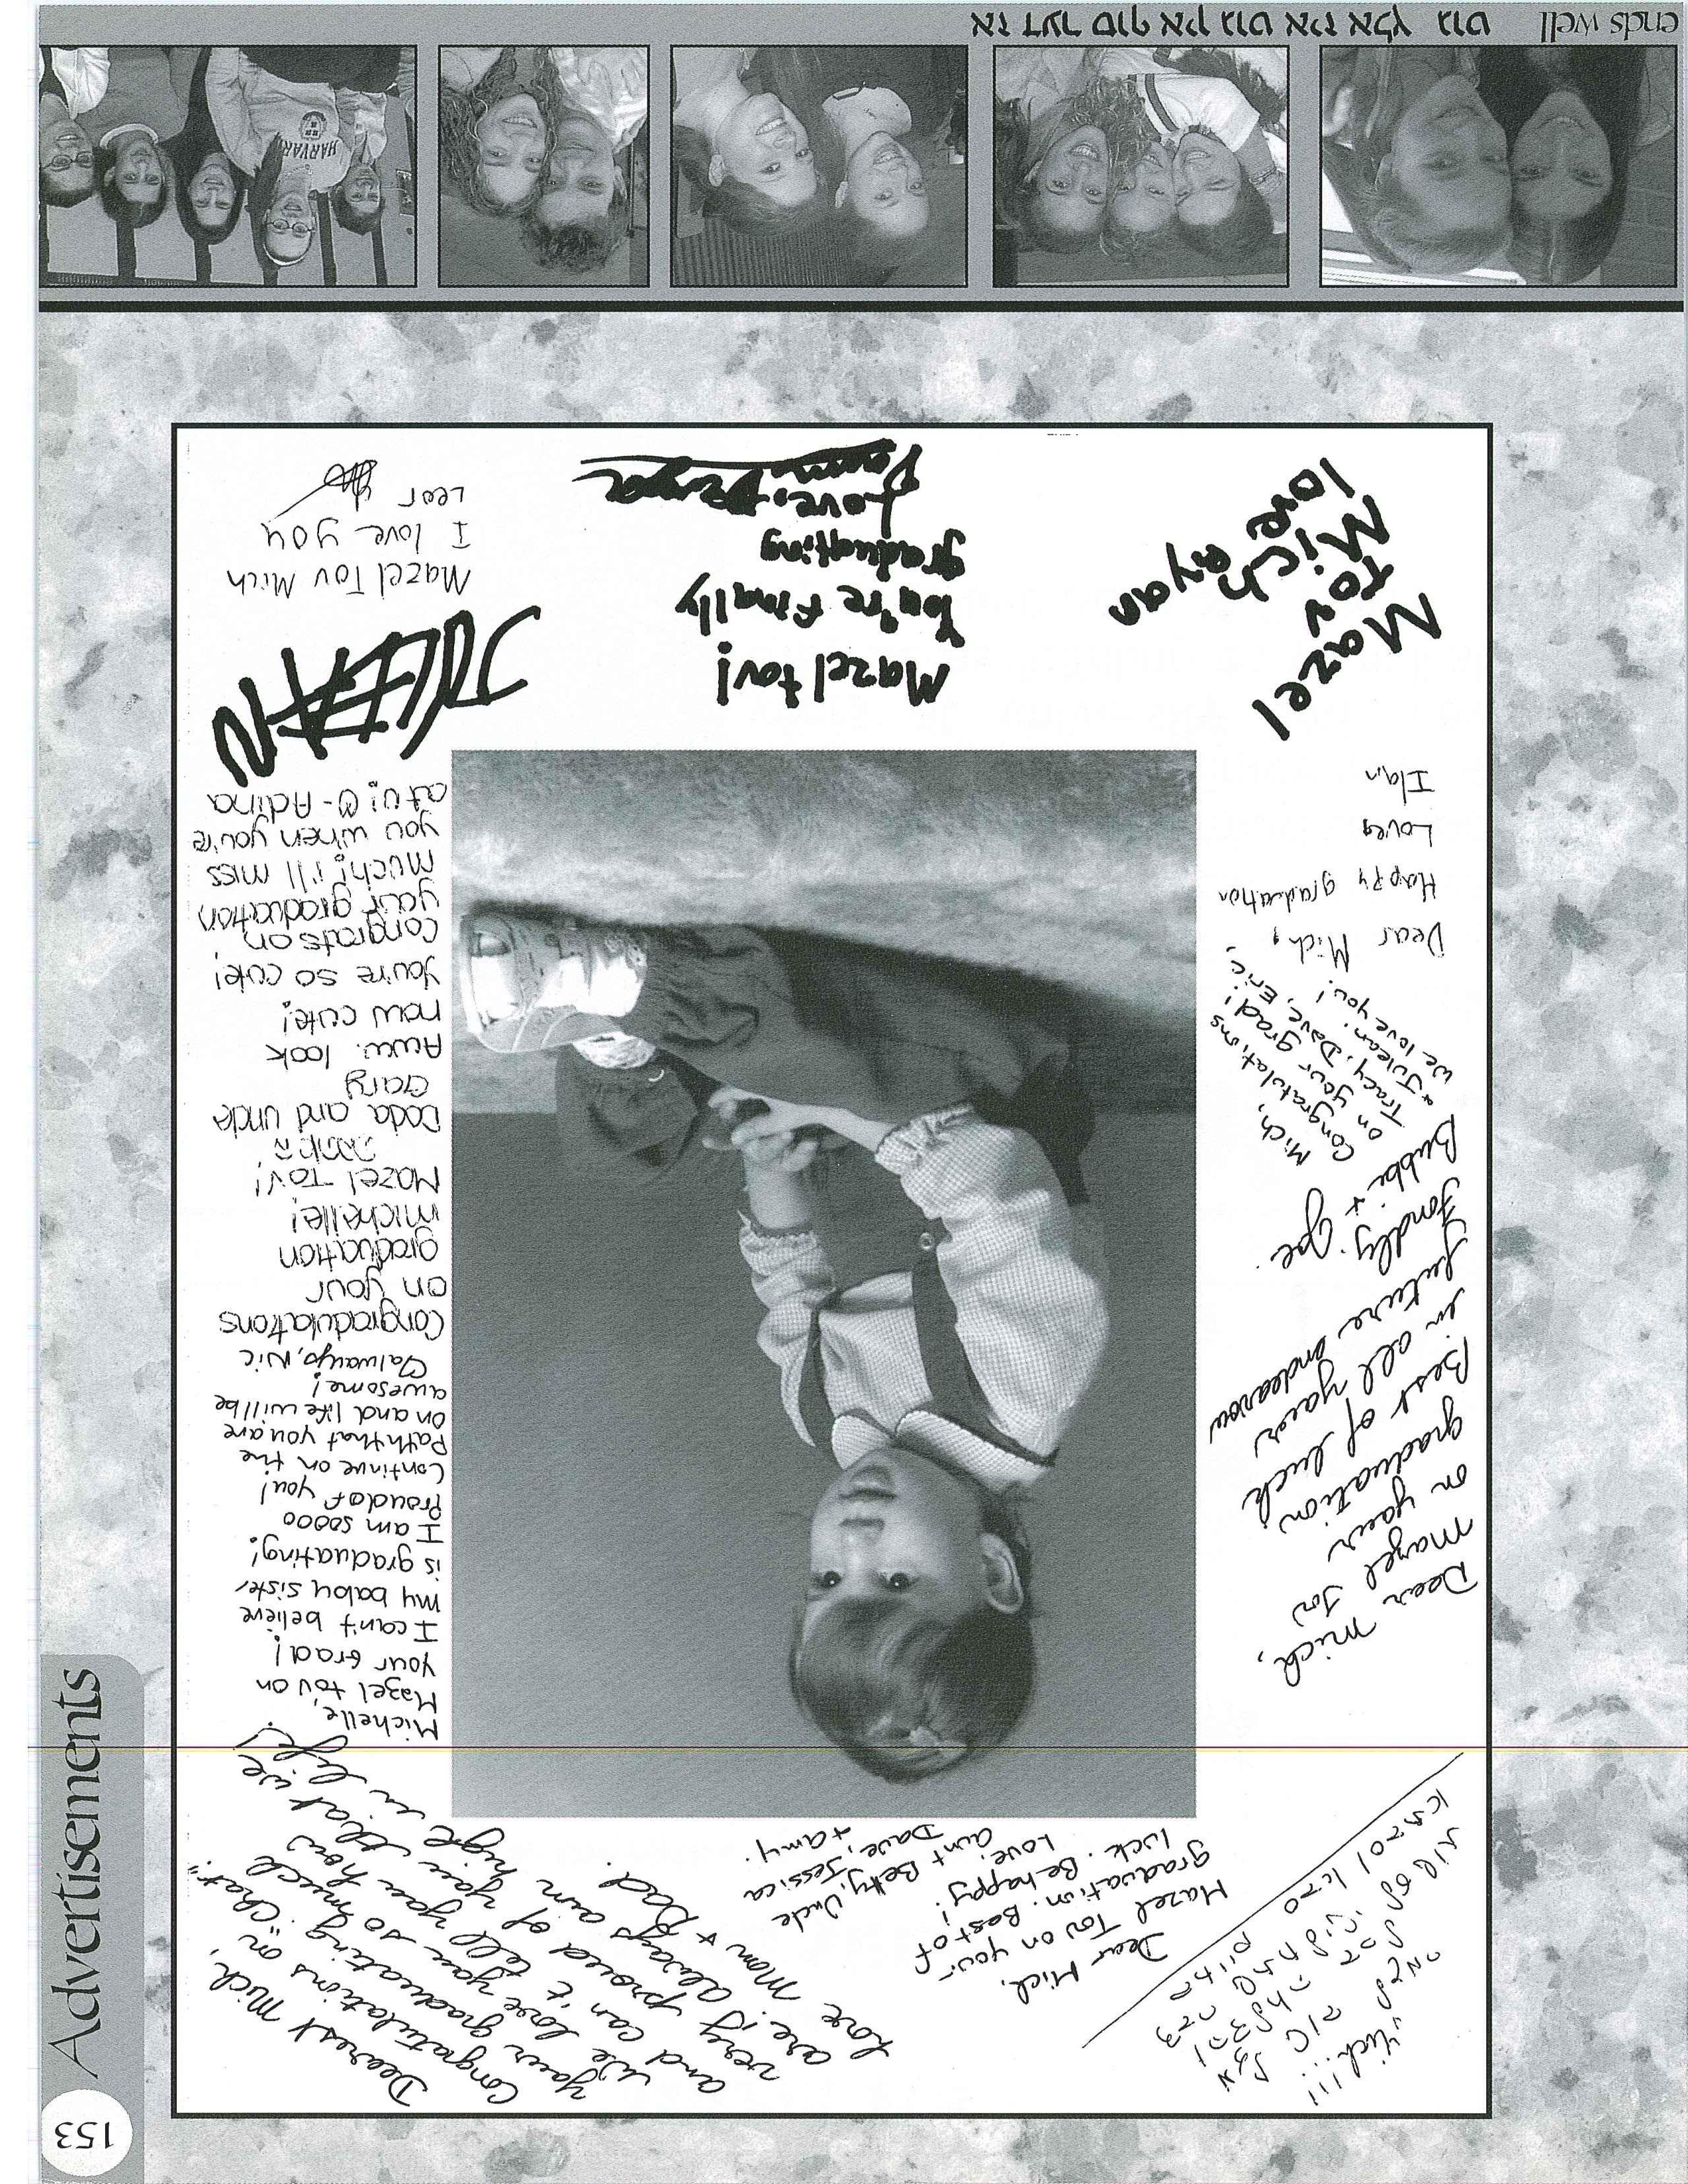 153
Advertisements
Dearest Mich,
Congratulations on
your graduating "Chat"
and we love you so much
very can't tell you how
proud of you that we
are. Always aim high in life!
Love Mom & Dad.
Dear Mich,
Mazel Tov on your
graduation. Best of
luck. Be happy!
Love, Aunt Betty, Uncle
Dave, Jessica
+ amy.
Michelle,
Mazel tov on
your Grad!
I can't believe
my baby sister
is graduating!
I am soooo
Proud of you!
Continue on the
Path that you are
on and life will be
awesome!
always, Nic
Congradulations
on your
graduation
michelle!
Mazel Tov!
Doda and uncle
Gary
Aww. look
how cute!
you're so cute!
Congrats on
your graduation
much! I'll miss
you when you're
at U! - Adina
JULEAN
Mazel Tov Mich
I love you
Leor
Dear Mich,
Mazel Tov
on your
graduation
Best of luck
in all your
future endeavou
Fondly,
Bubbi + Joe.
Mich,
Congratulations
on your grad!
Tracy, Dave, Eric,
& Julean.
We love you!
Dear Mich,
Happy graduation
Love
Ilan
Mazel
Tov
Mich
love
ayan
Mazel tov!
You're finally
graduating
Love,
ends well
אז דער סוף איז גוט איז אלץ גוט
HARVARD